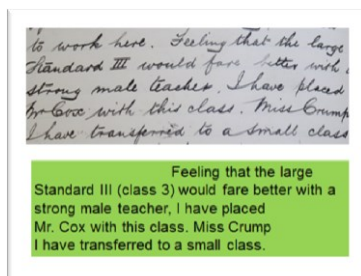 to work here. Feeling that the large
Standard III would fare better with a
strong male teacher, I have placed
Mr Cox with this class. Miss Crump
I have transferred to a small class
Feeling that the large
Standard III (class 3) would fare better with a
strong male teacher, I have placed
Mr. Cox with this class. Miss Crump
I have transferred to a small class.